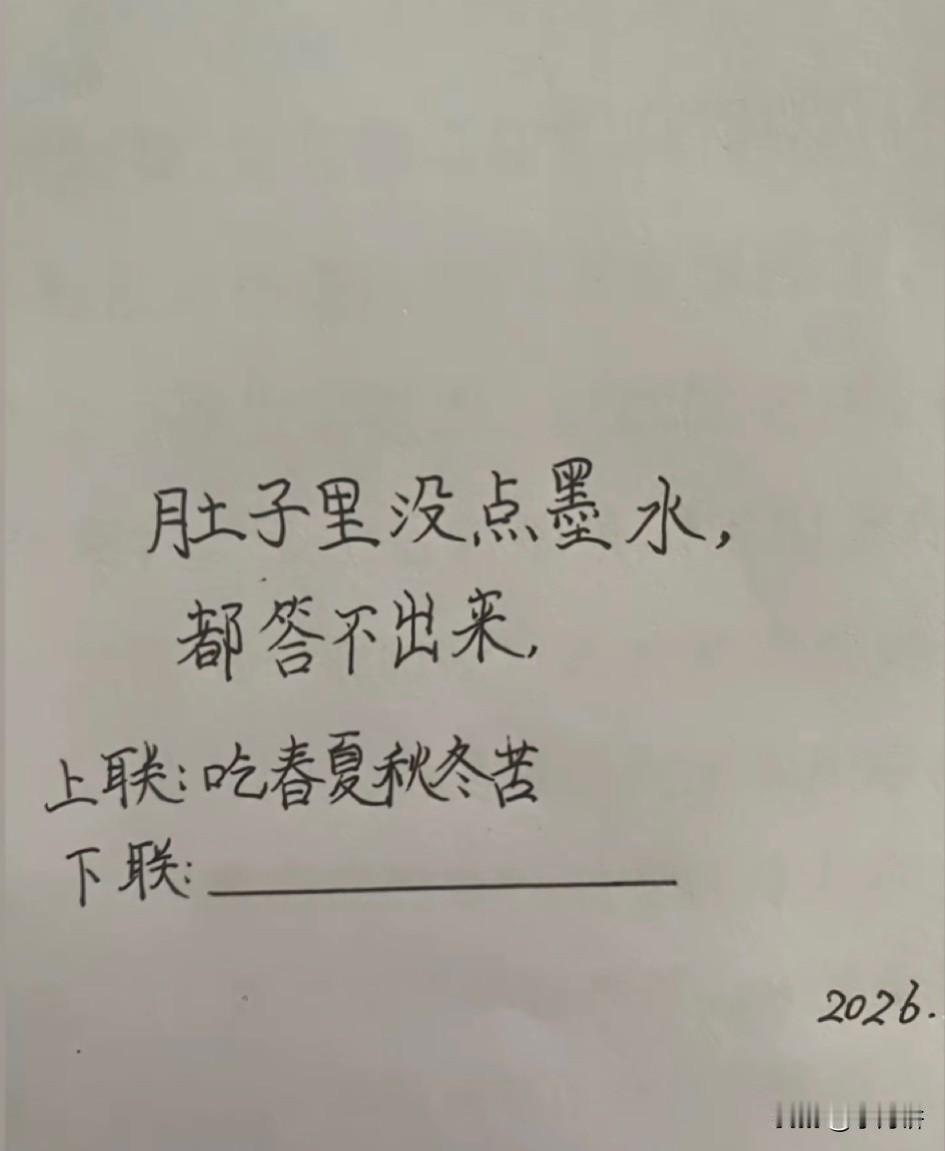 肚子里没点墨水，
都答不出来，
上联：吃春夏秋冬苦
下联：
2026.